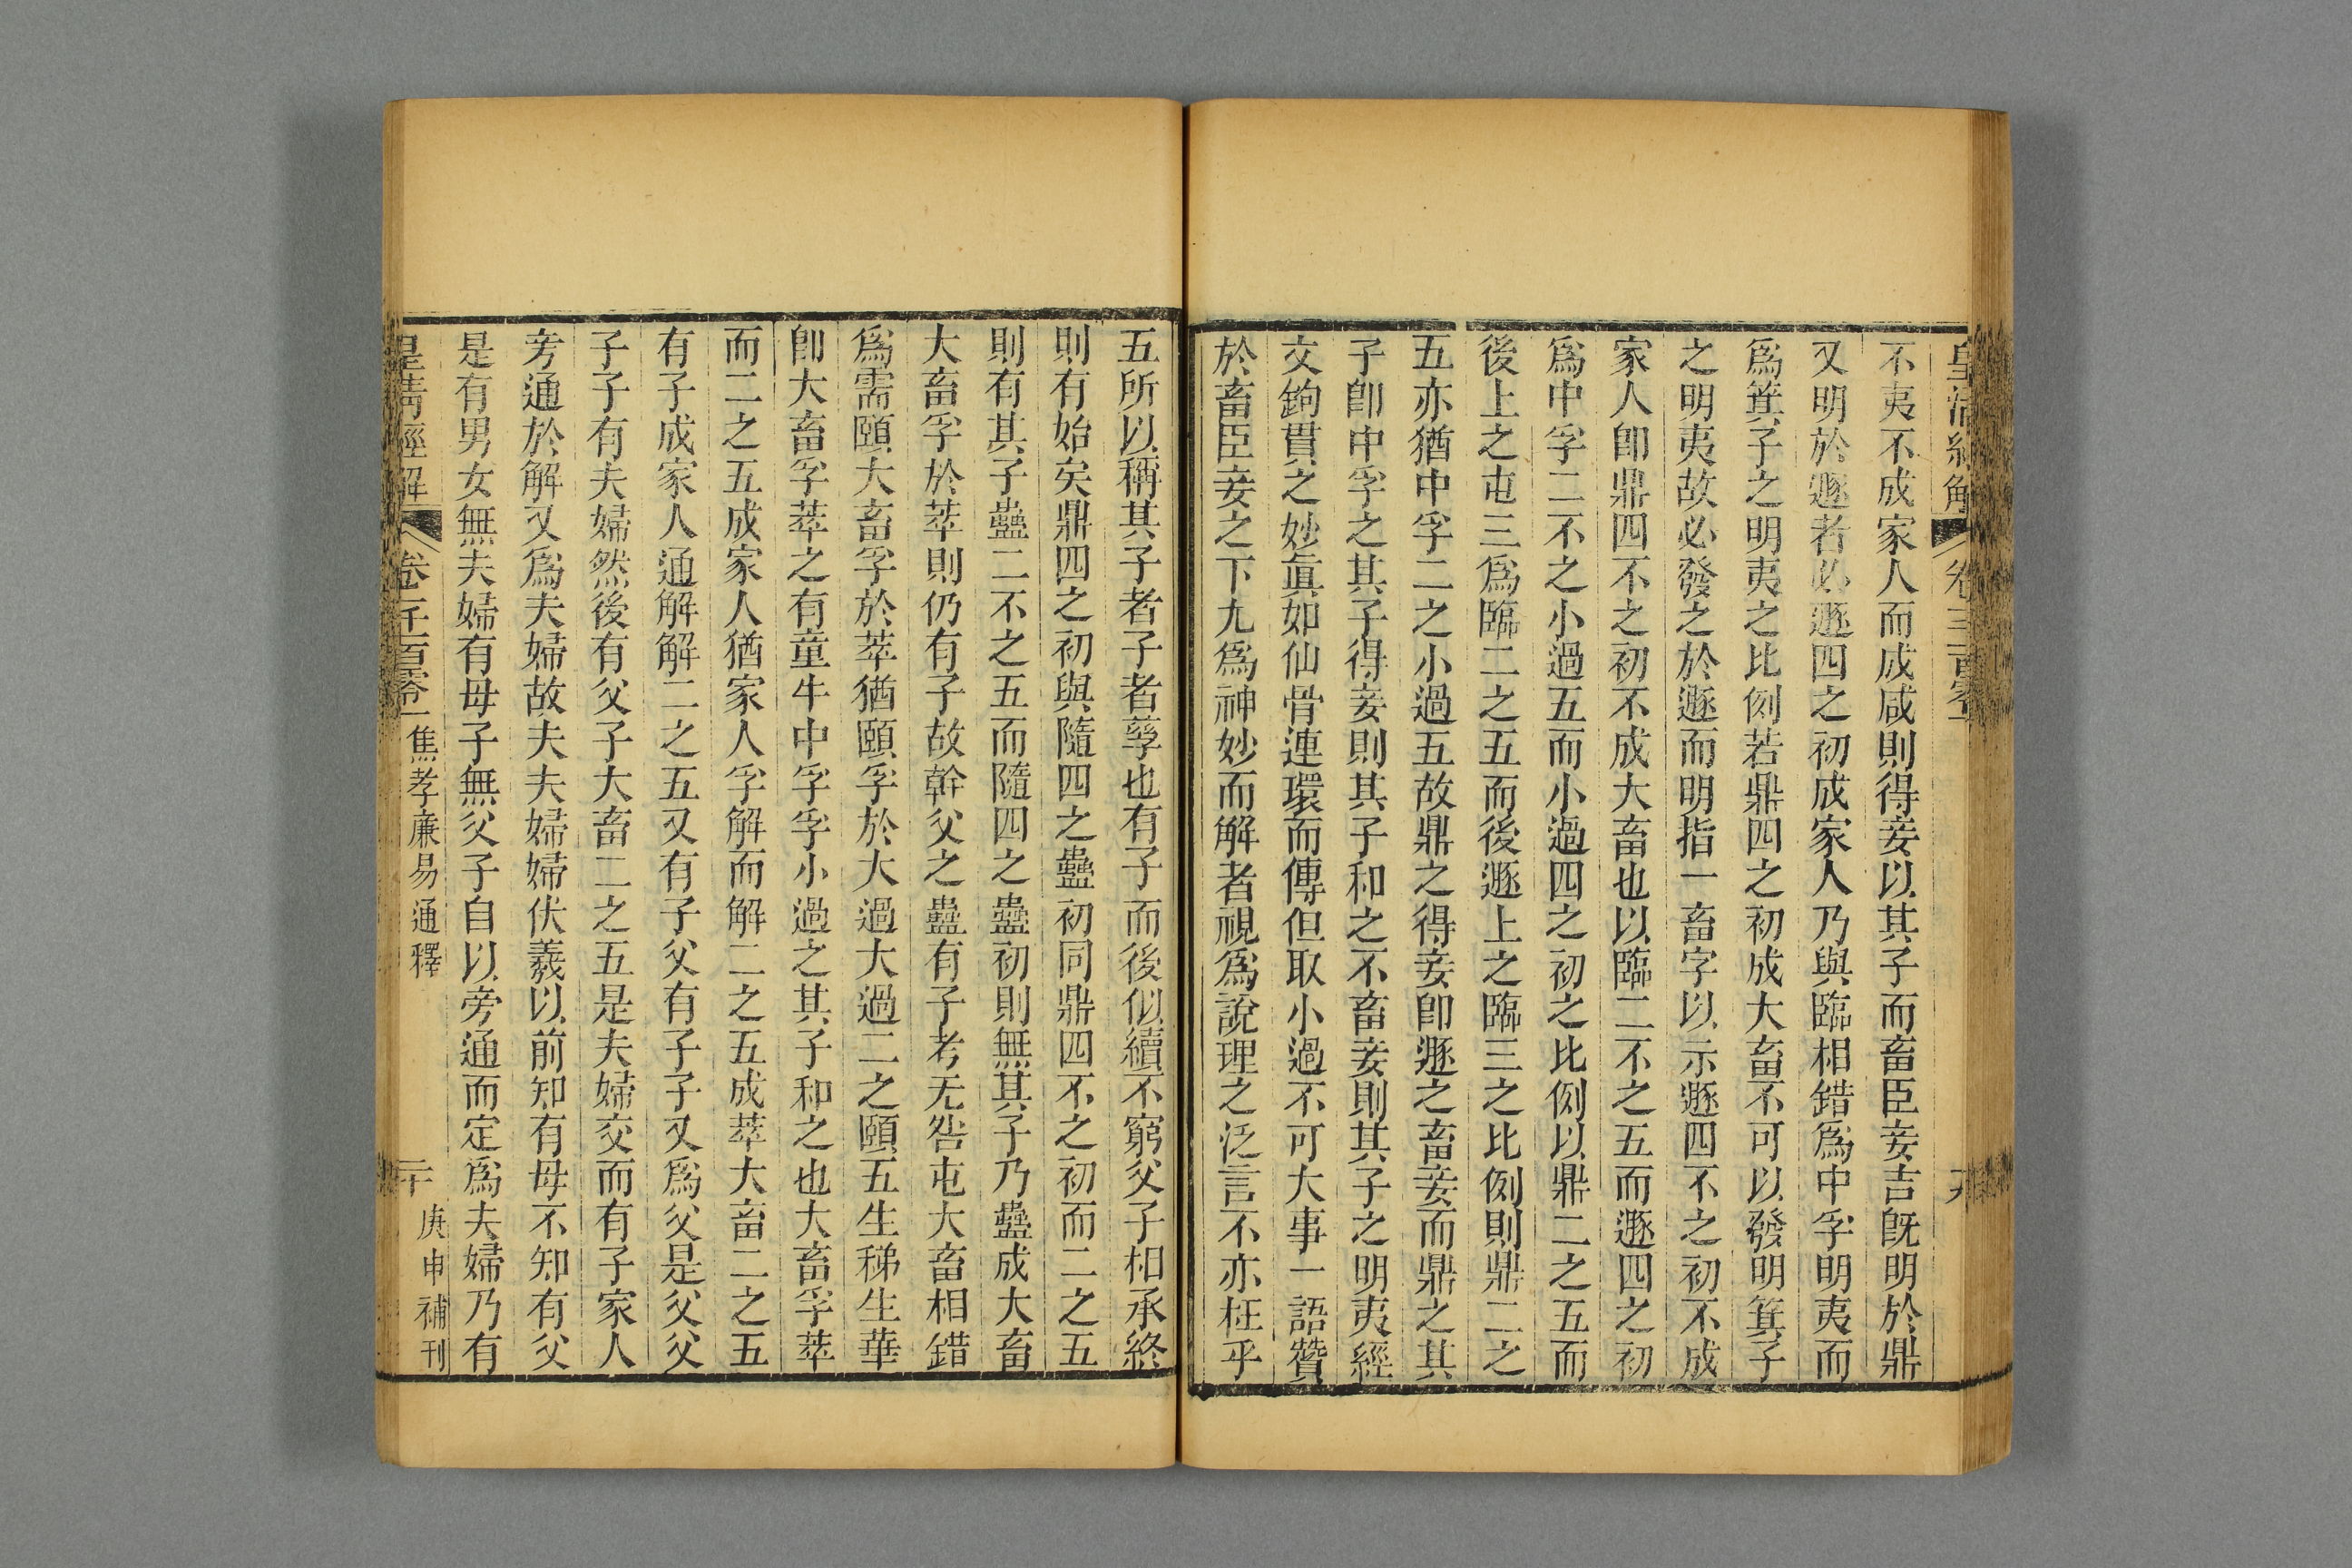 不夷不成家人而成咸則得妾以其子而畜臣妾吉旣明於鼎
又明於遯者必遯四之初成家人乃與臨相錯爲中孚明夷而
爲箕子之明夷之比例若鼎四之初成大畜不可以發明箕子
之明夷故必發之於遯而明指一畜字以示遯四不之初不成
家人卽鼎四不之初不成大畜也以臨二不之五而遯四之初
爲中孚二不之小過五而小過四之初之比例以鼎二之五而
後上之屯三爲臨二之五而後遯上之臨三之比例則鼎二之
五亦猶中孚二之小過五故鼎之得妾卽遯之畜妾而鼎之其
子卽中孚之其子得妾則其子和之不畜妾則其子之明夷經
文鉤貫之妙眞如仙骨連環而傳但取小過不可大事一語贊
於畜臣妾之下尢爲神妙而解者視爲說理之泛言不亦枉乎
五所以稱其子者子者孳也有子而後似續不窮父子相承終
則有始矣鼎四之初與隨四之蠱初同鼎四不之初而二之五
則有其子蠱二不之五而隨四之蠱初則無其子乃蠱成大畜
大畜孚於萃則仍有子故幹父之蠱有子考无咎屯大畜相錯
爲需頤大畜孚於萃猶頤孚於大過大過二之頤五生稊生華
卽大畜孚萃之有童牛中孚孚小過之其子和之也大畜孚萃
而二之五成家人猶家人孚解而解二之五成萃大畜二之五
有子成家人通解解二之五又有子父有子子又爲父是父父
子子有夫婦然後有父子大畜二之五是夫婦交而有子家人
旁通於解又爲夫婦故夫夫婦婦伏羲以前知有母不知有父
是有男女無夫婦有母子無父子自以旁通而定爲夫婦乃有
皇淸經解 卷一千一百零一 焦孝廉易通釋 二十 庚申補刊